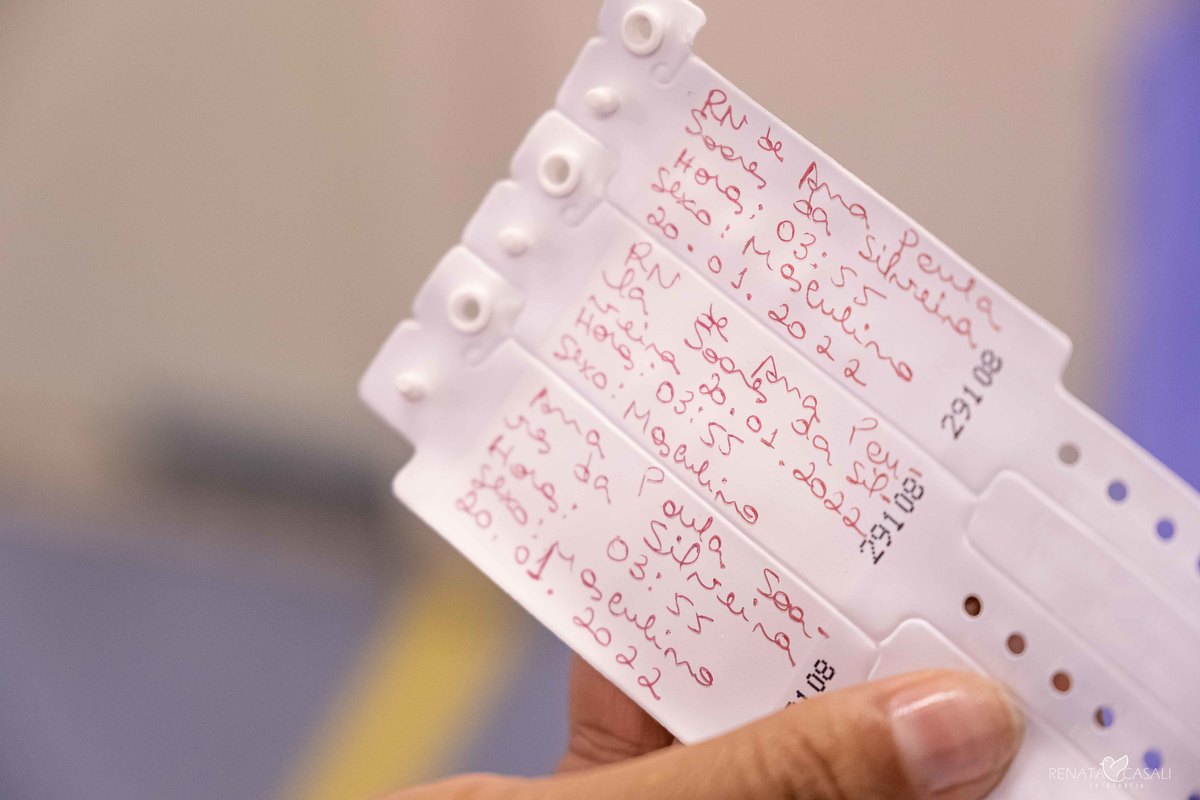 RN de Ana Paula
Soares da Silveira
Hora: 03:55
Sexo: Masculino
20.01.2022
29108
RN de Ana Pau-
la Soares da Sil-
veira 20.01.2022
Hora: 03:55
Sexo: Masculino
29108
Ana Paula Soa-
res da Silveira
Hora: 03:55
Sexo: Masculino
20.01.2022
RENATA CASALI
FOTOGRAFIA